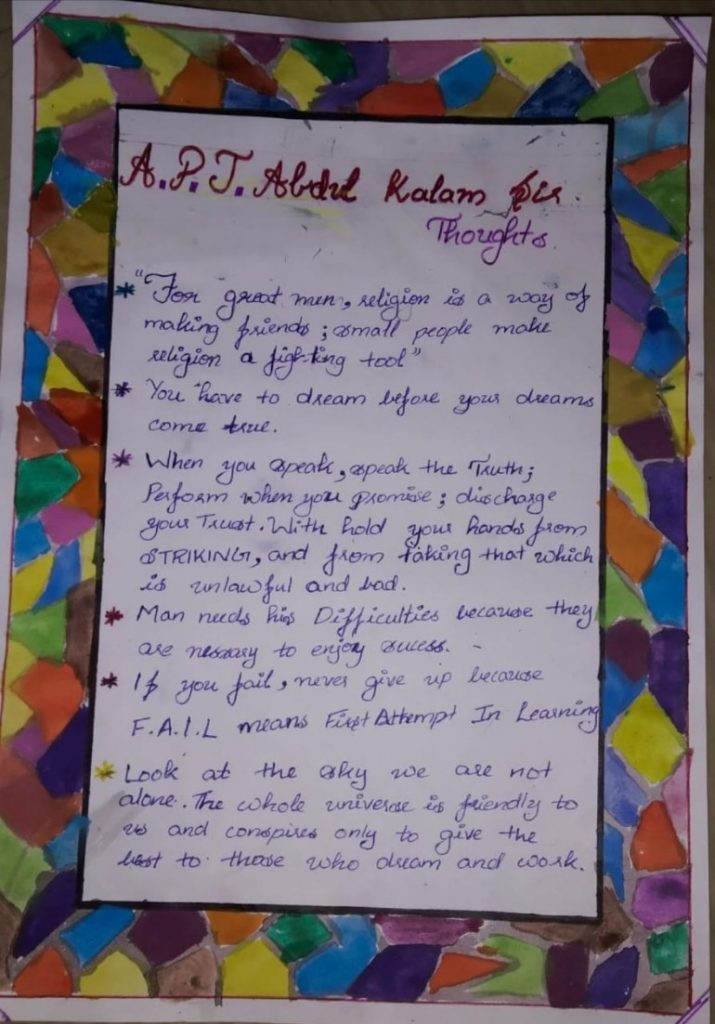 A.P.J. Abdul Kalam Sir
Thoughts
* "For great men, religion is a way of
making friends; small people make
religion a fighting tool"
* You have to dream before your dreams
come true.
* When you speak, speak the Truth;
Perform when you promise; discharge
your Trust. With hold your hands from
STRIKING, and from taking that which
is unlawful and bad.
* Man needs his Difficulties because they
are nessary to enjoy sucess.
* If you fail, never give up because
F.A.I.L means First Attempt In Learning
* Look at the sky we are not
alone. The whole universe is friendly to
us and conspires only to give the
best to those who dream and work.